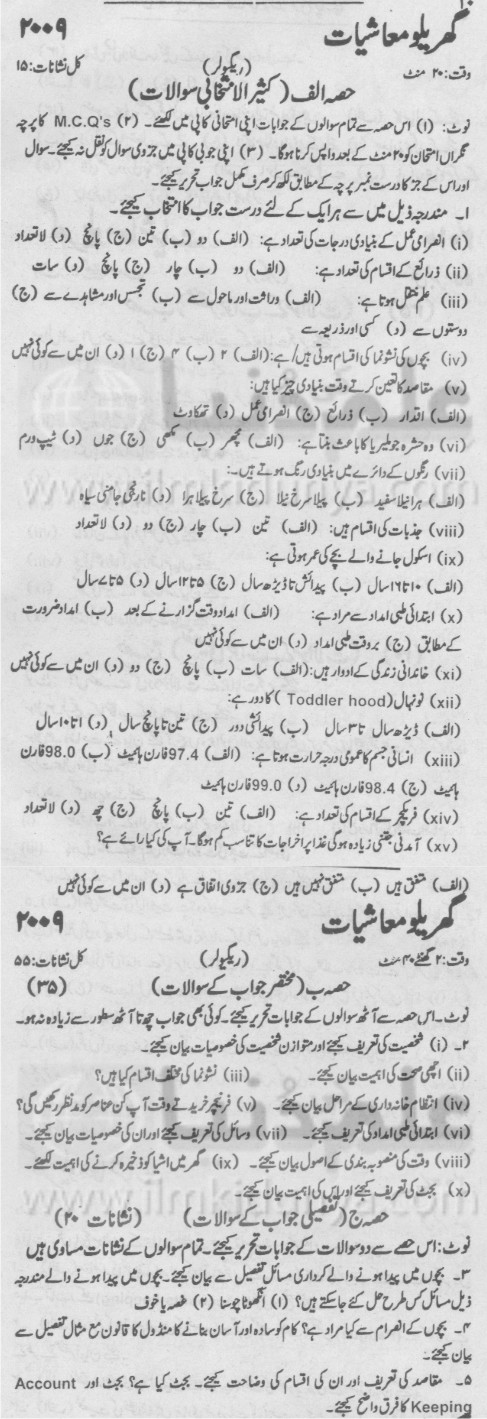 گھریلو معاشیات ۲۰۰۹
وقت: ۲۰ منٹ (ریگولر) کل نشانات: ۱۵
حصہ الف (کثیر الانتخابی سوالات)
نوٹ: (۱) اس حصہ سے تمام سوالوں کے جوابات اپنی امتحانی کاپی میں لکھئے۔ (۲) M.C.Q's کا پرچہ
نگران امتحان کو ۲۰ منٹ کے بعد واپس کرنا ہوگا۔ (۳) اپنی جوابی کاپی میں جزوی سوال کو نقل نہ کیجئے۔ سوال
اور اس کے جز کا درست نمبر پرچہ کے مطابق لکھ کر صرف مکمل جواب تحریر کیجئے۔
۱۔ مندرجہ ذیل میں سے ہر ایک کے لئے درست جواب کا انتخاب کیجئے۔
(i) انصرامی عمل کے بنیادی درجات کی تعداد ہے: (الف) دو (ب) تین (ج) پانچ (د) لاتعداد
(ii) ذرائع کے اقسام کی تعداد ہے: (الف) دو (ب) چار (ج) پانچ (د) سات
(iii) علم منتقل ہوتا ہے: (الف) وراثت اور ماحول سے (ب) تجسس اور مشاہدے سے (ج)
دوستوں سے (د) کسی اور ذریعہ سے
(iv) بچوں کی نشوونما کی اقسام ہوتی ہیں/ہے: (الف) ۲ (ب) ۴ (ج) ۱ (د) ان میں سے کوئی نہیں
(v) مقاصد کا تعین کرتے وقت بنیادی چیز کیا ہیں:
(الف) اقدار (ب) ذرائع (ج) انصرامی عمل (د) تھکاوٹ
(vi) وہ حشرہ جو ملیریا کا باعث بنتا ہے: (الف) مچھر (ب) مکھی (ج) جوں (د) ٹیپ ورم
(vii) رنگوں کے دائرے میں بنیادی رنگ ہوتے ہیں۔:
(الف) ہرا نیلا سفید (ب) پیلا سرخ نیلا (ج) سرخ پیلا ہرا (د) نارنجی جامنی سیاہ
(viii) جذبات کی اقسام ہیں: (الف) تین (ب) چار (ج) دو (د) لاتعداد
(ix) اسکول جانے والے بچے کی عمر ہوتی ہے:
(الف) ۱۰ تا ۱۶ سال (ب) پیدائش تا ڈیڑھ سال (ج) ۵ تا ۱۲ سال (د) ۵ تا ۷ سال
(x) ابتدائی طبی امداد سے مراد ہے: (الف) امداد وقت گزارنے کے بعد (ب) امداد ضرورت
کے مطابق (ج) بروقت طبی امداد (د) ان میں سے کوئی نہیں
(xi) خاندانی زندگی کے ادوار ہیں: (الف) سات (ب) پانچ (ج) دو (د) ان میں سے کوئی نہیں
(xii) نونہال (Toddler hood) کا دور ہے:
(الف) ڈیڑھ سال تا ۳ سال (ب) پیدائشی دور (ج) تین تا پانچ سال (د) ۱ تا ۱۰ سال
(xiii) انسانی جسم کا عمومی درجہ حرارت ہوتا ہے: (الف) 97.4 فارن ہائیٹ (ب) 98.0 فارن
ہائیٹ (ج) 98.4 فارن ہائیٹ (د) 99.0 فارن ہائیٹ
(xiv) فریکچر کے اقسام کی تعداد ہے: (الف) تین (ب) پانچ (ج) چھ (د) لاتعداد
(xv) آمدنی جتنی زیادہ ہوگی غذا پر اخراجات کا تناسب کم ہوگا۔ آپ کی کیا رائے ہے؟
(الف) متفق ہیں (ب) متفق نہیں ہیں (ج) جزوی اتفاق ہے (د) ان میں سے کوئی نہیں
گھریلو معاشیات ۲۰۰۹
وقت: ۲ گھنٹے ۴۰ منٹ (ریگولر) کل نشانات: ۵۵
حصہ ب (مختصر جواب کے سوالات) (۳۵)
نوٹ۔ اس حصہ سے آٹھ سوالوں کے جوابات تحریر کیجئے۔ کوئی بھی جواب چھ تا آٹھ سطور سے زیادہ نہ ہو۔
۲۔ (i) شخصیت کی تعریف کیجئے اور متوازن شخصیت کی خصوصیات بیان کیجئے۔
(ii) اچھی صحت کی اہمیت بیان کیجئے۔ (iii) نشوونما کی مختلف اقسام کیا ہیں؟
(iv) انتظام خانہ داری کے مراحل بیان کیجئے۔ (v) فرنیچر خریدتے وقت آپ کن عناصر کو مدنظر رکھیں گی؟
(vi) ابتدائی طبی امداد کی تعریف کیجئے۔ (vii) وسائل کی تعریف کیجئے اور ان کی خصوصیات بیان کیجئے۔
(viii) وقت کی منصوبہ بندی کے اصول بیان کیجئے۔ (ix) گھر میں اشیا کو ذخیرہ کرنے کی اہمیت لکھئے۔
(x) بجٹ کی تعریف کیجئے اور اس کی اہمیت بیان کیجئے۔
حصہ ج (تفصیلی جواب کے سوالات) (نشانات ۲۰)
نوٹ: اس حصے سے دو سوالات کے جوابات تحریر کیجئے۔ تمام سوالوں کے نشانات مساوی ہیں
۳۔ بچوں میں پیدا ہونے والے کرداری مسائل تفصیل سے بیان کیجئے۔ بچوں میں پیدا ہونے والے مندرجہ
ذیل مسائل کس طرح حل کئے جاسکتے ہیں؟ (۱) انگوٹھا چوسنا (۲) غصہ یا خوف
۴۔ بچوں کے انصرام سے کیا مراد ہے؟ کام کو سادہ اور آسان بنانے کا منڈول کا قانون مع مثال تفصیل سے
بیان کیجئے۔
۵۔ مقاصد کی تعریف اور ان کی اقسام کی وضاحت کیجئے۔ بجٹ کیا ہے؟ بجٹ اور Account
Keeping کا فرق واضح کیجئے۔